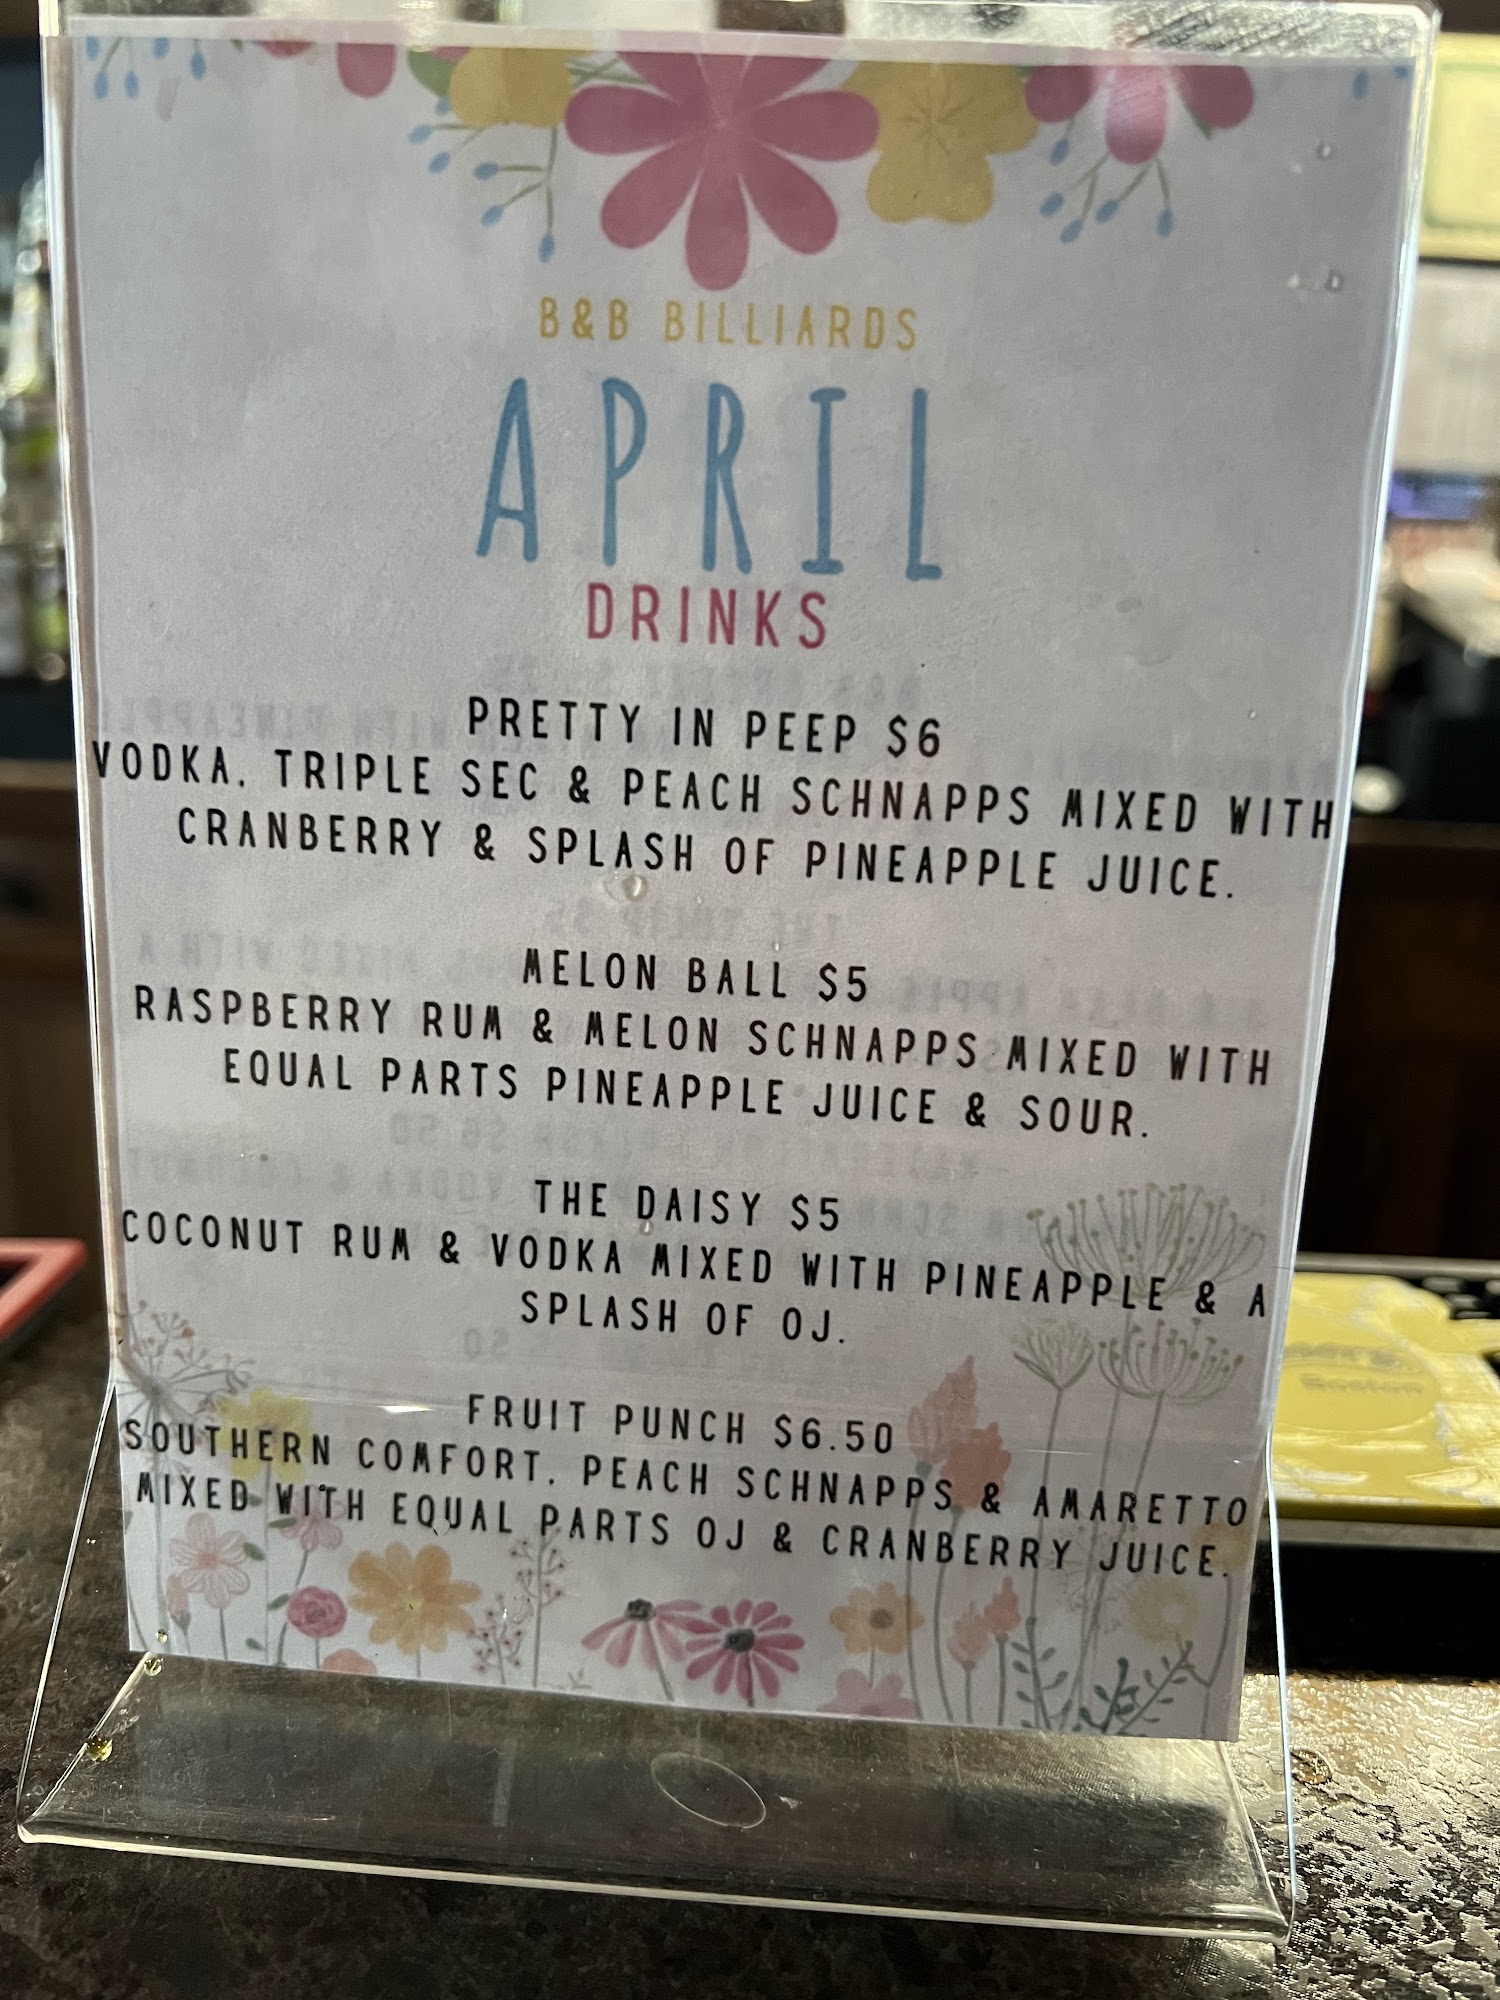 B&B BILLIARDS
APRIL
DRINKS
PRETTY IN PEEP $6
VODKA, TRIPLE SEC & PEACH SCHNAPPS MIXED WITH
CRANBERRY & SPLASH OF PINEAPPLE JUICE.
MELON BALL $5
RASPBERRY RUM & MELON SCHNAPPS MIXED WITH
EQUAL PARTS PINEAPPLE JUICE & SOUR.
THE DAISY $5
COCONUT RUM & VODKA MIXED WITH PINEAPPLE & A
SPLASH OF OJ.
FRUIT PUNCH $6.50
SOUTHERN COMFORT, PEACH SCHNAPPS & AMARETTO
MIXED WITH EQUAL PARTS OJ & CRANBERRY JUICE.